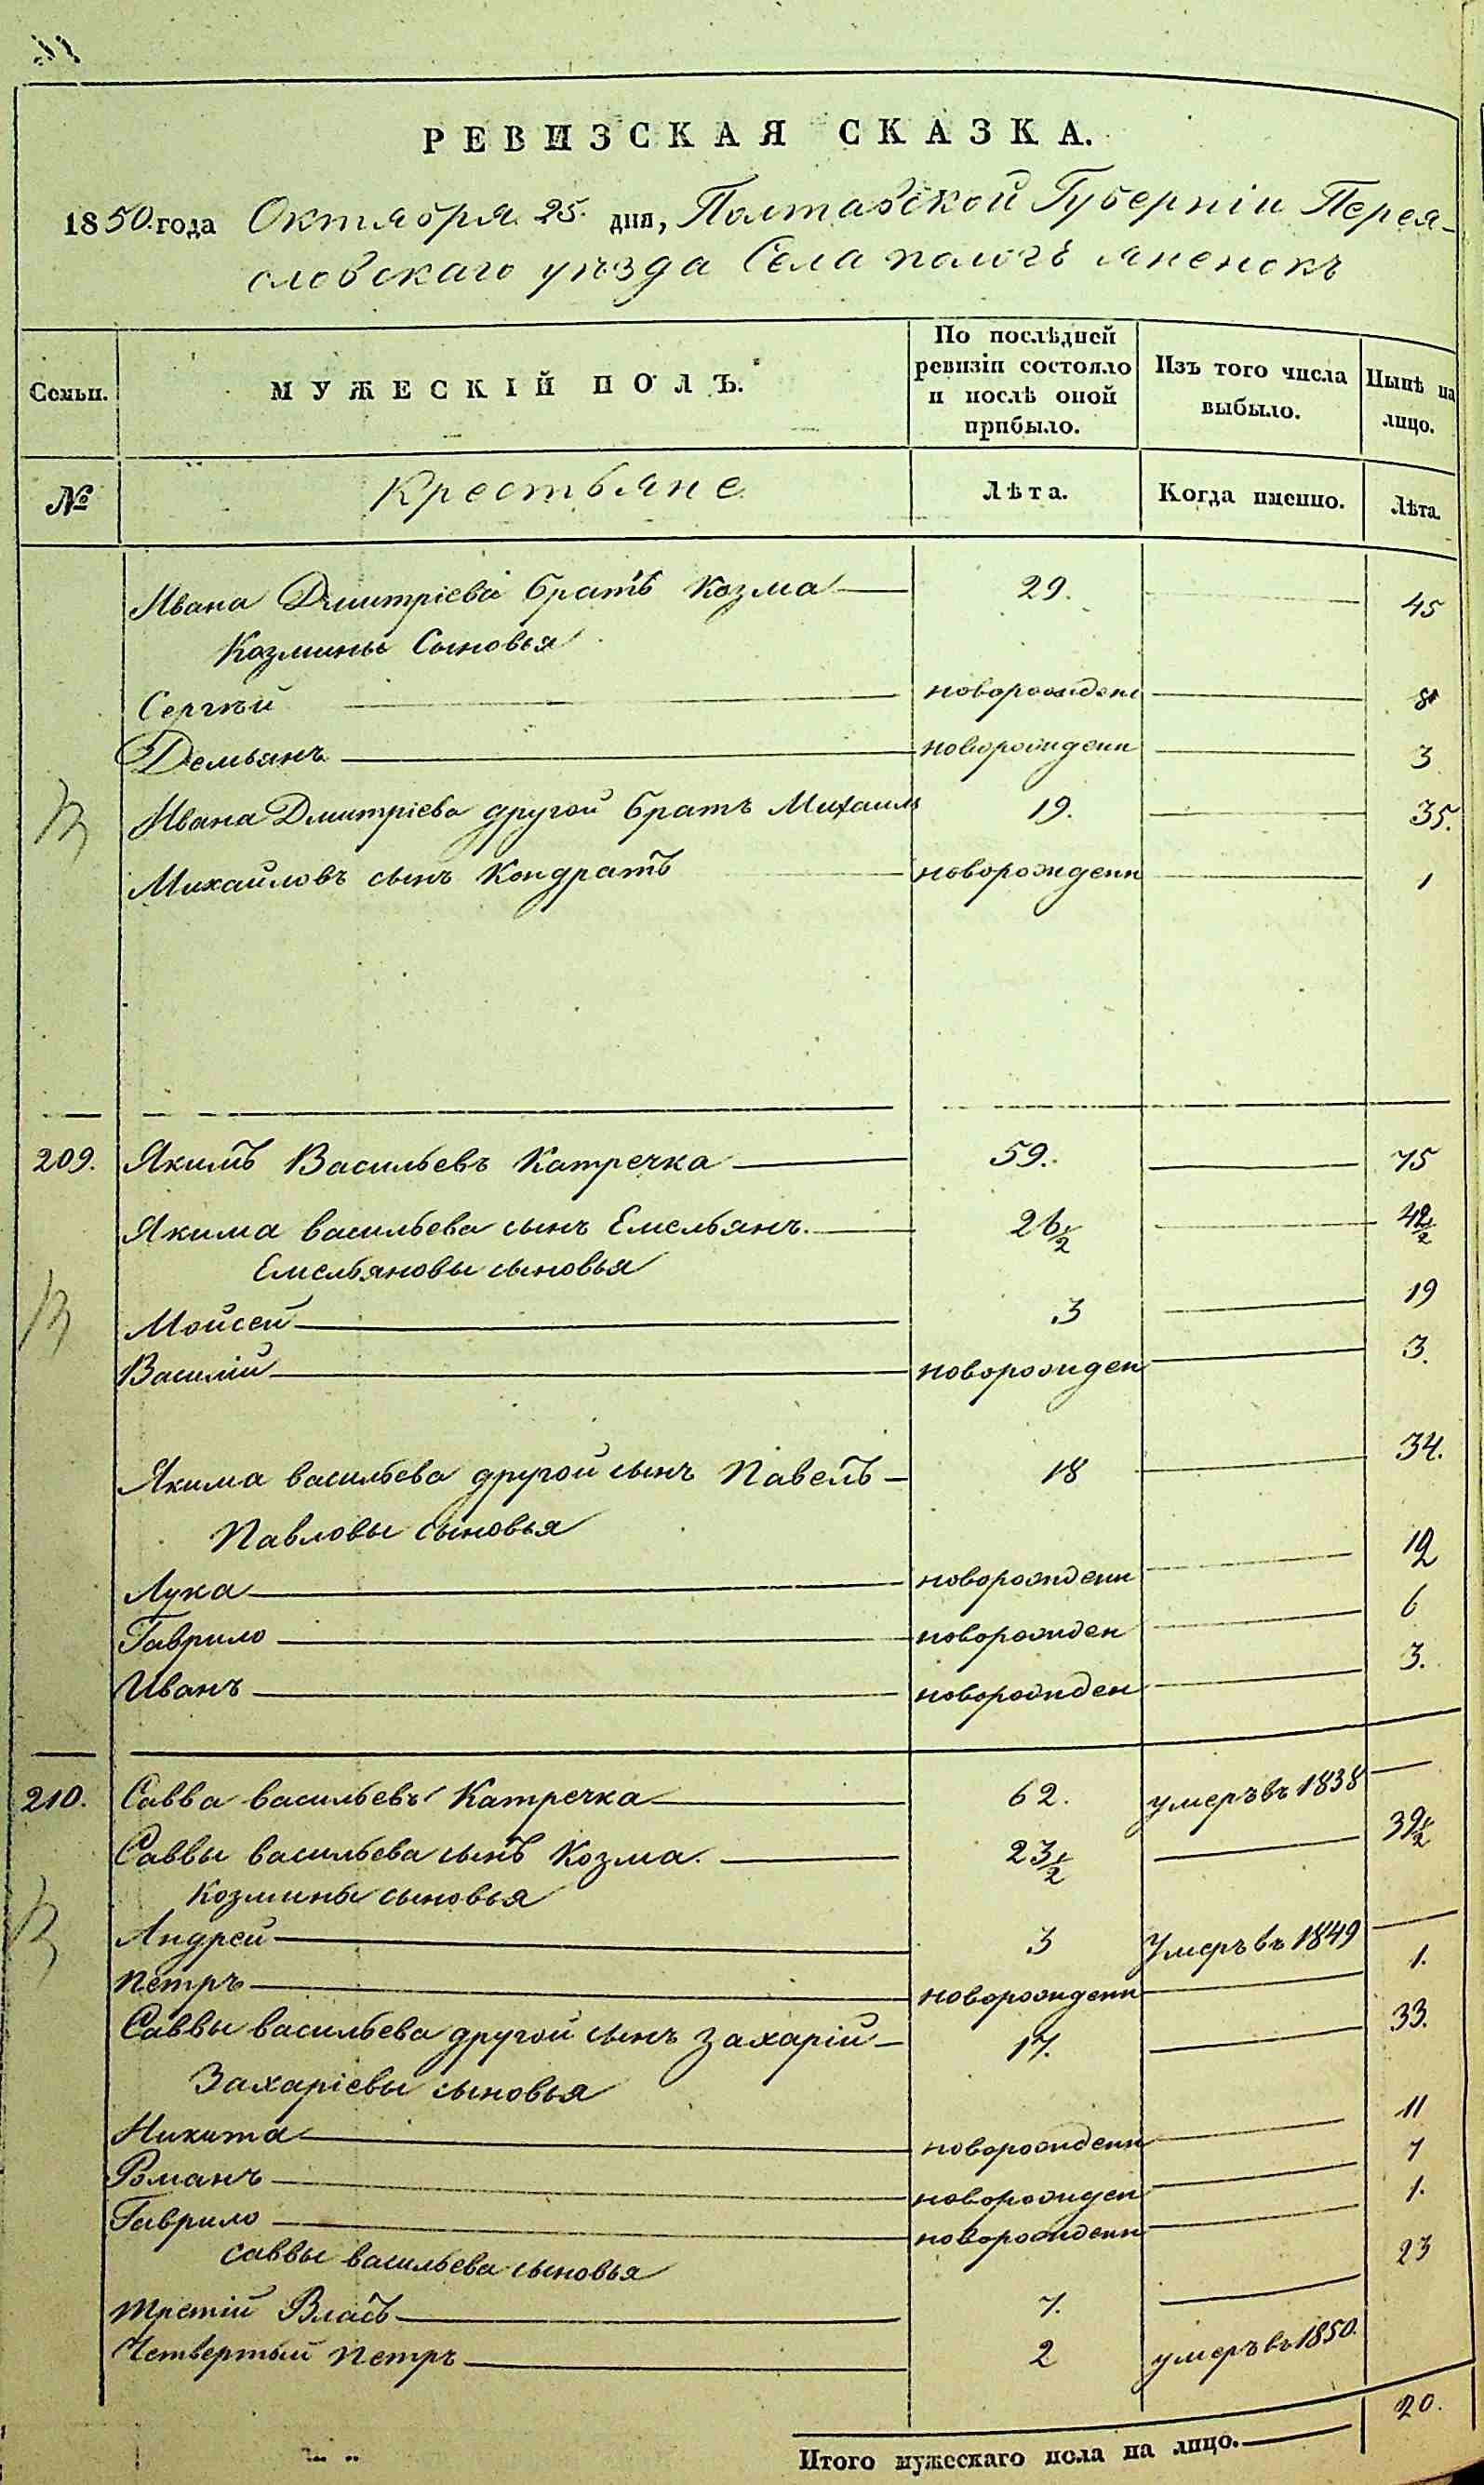 РЕВИЗСКАЯ СКАЗКА.
1850. года Октября 25. дня, Полтавской Губерніи Перея-
словскаго уѣзда Села
Семьи. МУЖЕСКІЙ ПОЛЪ. По послѣдней ревизіи состояло и послѣ оной прибыло. Изъ того числа выбыло. Нынѣ на лицо.
№ Крестьяне Лѣта. Когда именно. Лѣта.
Ивана Дмитріева братъ Козма 29. 45
Козмины Сыновья
Сергѣй новорожден 8
Демьянъ новорожденн 3
Ивана Дмитріева другой братъ Михаилъ 19. 35.
Михайловъ сынъ Кондратъ новорожденн 1
209. Якимъ Васильевъ Катречка 59. 75
Якима васильева сынъ Емельянъ. 26 1/2 42 1/2
Емельяновы сыновья
Мойсей 3 19
Василій новорожден 3.
Якима васильева другой сынъ Павелъ 18 34.
Павловы сыновья
Лука новорожденн 12
Гаврило новорожден 6
Иванъ новорожден 3.
210. Савва васильевъ Катречка 62. умеръ въ 1838
Саввы васильева сынъ Козма. 23 1/2 39 1/2
Козмины сыновья
Андрей 3 Умеръ въ 1849
Петръ новорожденн 1.
Саввы васильева другой сынъ Захарій 17. 33.
Захаріевы сыновья
Никита новорожденн 11
Романъ новорожден 7
Гаврило новорожденн 1.
Саввы васильева сыновья
третій Власъ 7. 23
Четвертый Петръ 2 умеръ въ 1850.
Итого мужескаго пола на лицо. 20.